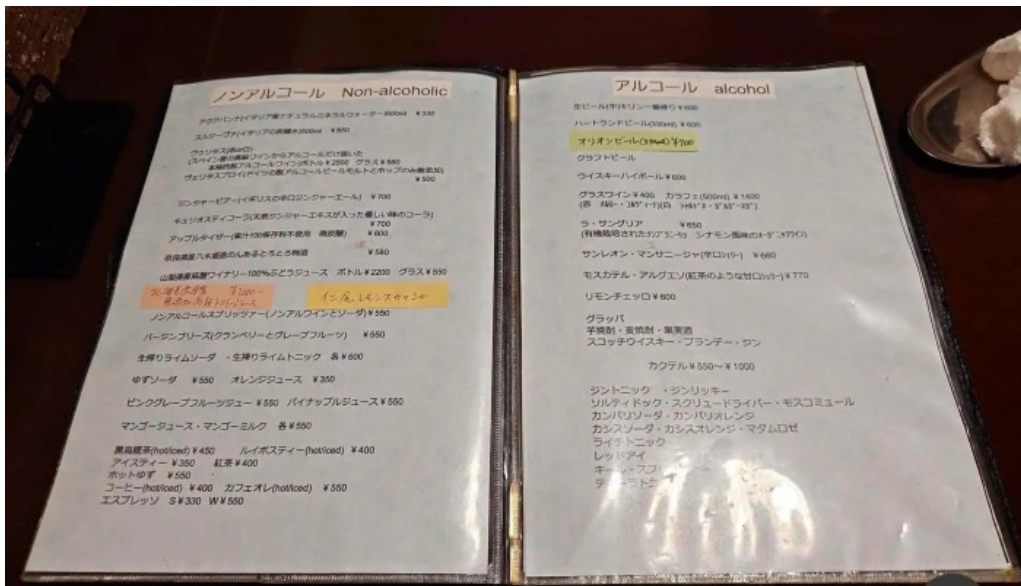 ノンアルコール Non-alcoholic
アクアパンナ(イタリア産ナチュラルミネラルウォーター)500ml ¥330
スルジーヴァ(イタリアの炭酸水)500ml ¥550
(スペイン産の高級ワインからアルコールだけ抜いた
本格的脱アルコールワイン)ボトル¥2500 グラス¥550
ヴェリタスブロイ(ドイツの脱アルコールビールモルトとホップのみ無添加)
¥500
ジンジャービアー(イギリスの辛口ジンジャーエール) ¥700
キュリオスティコーラ(天然ジンジャーエキスが入った優しい味のコーラ)
¥700
アップルタイザー(果汁100保存料不使用 微炭酸) ¥600
奈良県産八木酒造のんあるとろとろ梅酒 ¥580
ワイナリー100%ぶどうジュース ボトル¥2200 グラス¥550
仁尾レモンスカッシュ
ノンアルコールスプリッツァー(ノンアルワインとソーダ)¥550
バージンブリーズ(クランベリーとグレープフルーツ) ¥550
生搾りライムソーダ ・生搾りライムトニック 各¥600
ゆずソーダ ¥550 オレンジジュース ¥350
ピンクグレープフルーツジュー ¥550 パイナップルジュース¥550
マンゴージュース・マンゴーミルク 各¥550
黒烏龍茶(hot/iced)¥450 ルイボスティー(hot/iced) ¥400
アイスティー ¥350 紅茶¥400
ホットゆず ¥550
コーヒー(hot/iced) ¥400 カフェオレ(hot/iced) ¥550
エスプレッソ S¥330 W¥550
アルコール alcohol
生ビール(中)キリン一番搾り¥600
ハートランドビール(330ml) ¥600
オリオンビール(334ml) ¥700
クラフトビール
ウイスキーハイボール¥600
グラスワイン¥400 カラフェ(500ml) ¥1400
ラ・サングリア ¥650
サンレオン・マンサニージャ(辛口シェリー) ¥660
モスカテル・アルグエソ(紅茶のような甘口シェリー)¥770
リモンチェッロ¥600
グラッパ
芋焼酎・麦焼酎・果実酒
スコッチウイスキー・ブランデー・ジン
カクテル¥550～¥1000
ジントニック ・ジンリッキー
ソルティドック・スクリュードライバー・モスコミュール
カンパリソーダ・カンパリオレンジ
カシスソーダ・カシスオレンジ・マダムロゼ
ライチトニック
レッドアイ
キール・スプ